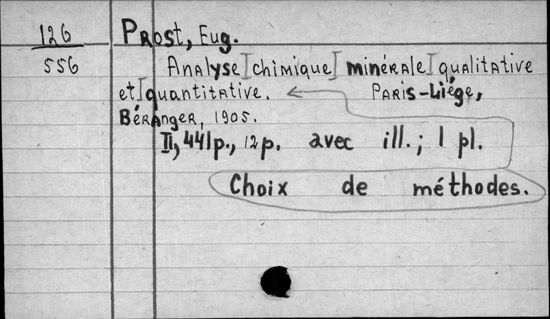 126
556
Prost, Eug.
Analyse chimique minérale qualitative
et quantitative. Paris-Liége,
Béranger, 1905.
II, 441p., 12p. avec ill.; 1 pl.
Choix de méthodes.